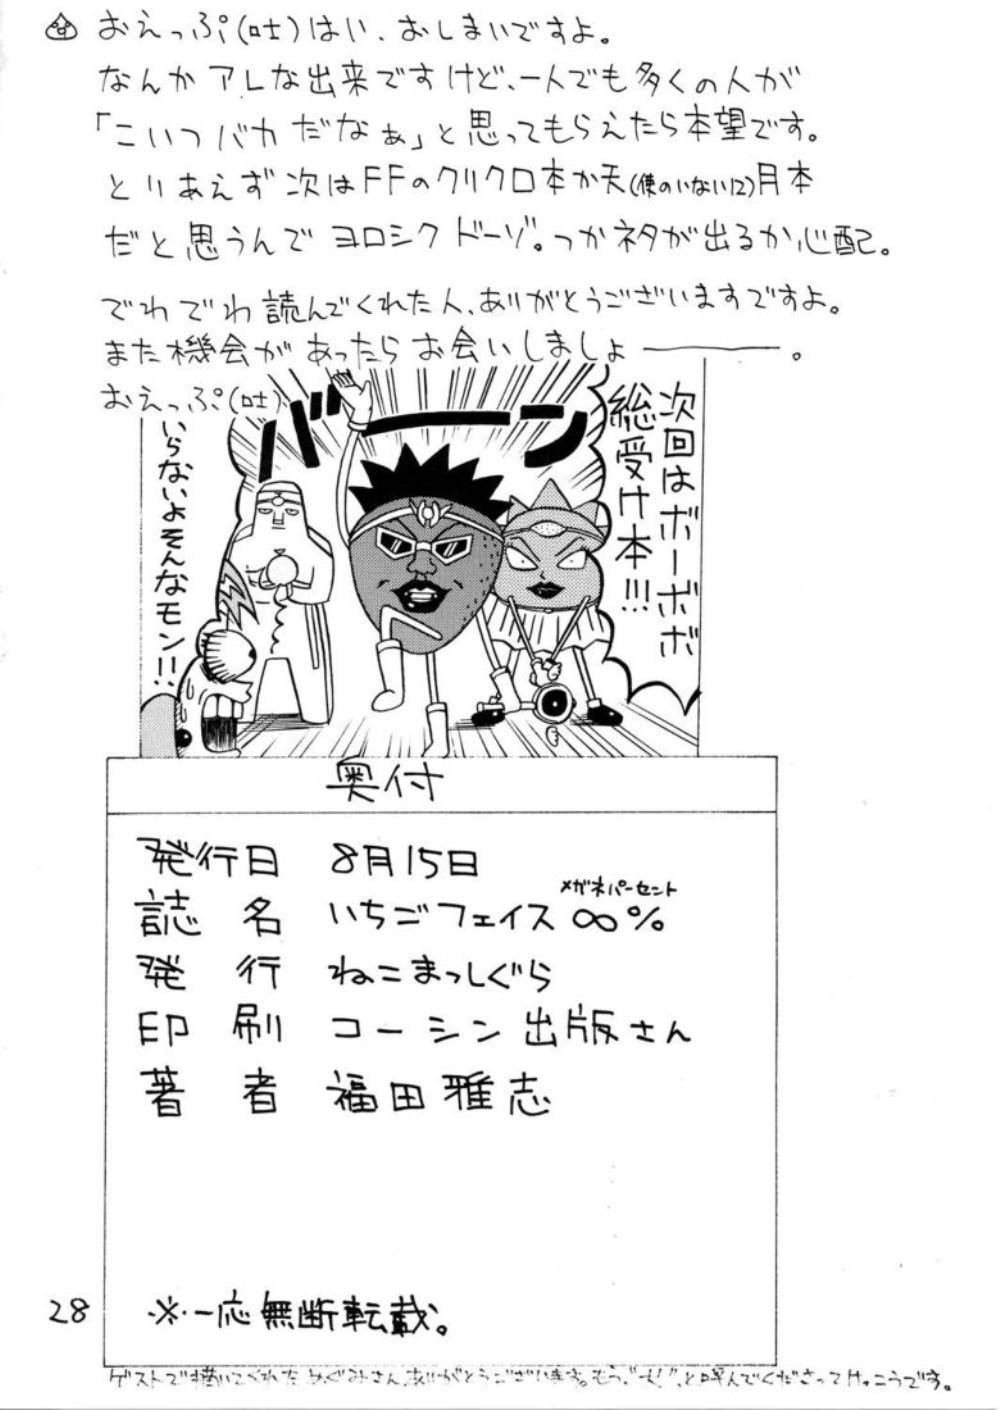 おえっぷ(吐)はい、おしまいですよ。
なんかアレな出来ですけど、一人でも多くの人が
「こいつバカだなぁ」と思ってもらえたら本望です。
とりあえず次はFFのクリクロ本か天(使のいない12)月本
だと思うんでヨロシクドーゾ。つかネタが出るか心配。
でわでわ読んでくれた人、ありがとうございますですよ。
また機会があったらお会いしましょ――。
おえっぷ(吐)
バーン
次回はボーボボ
総受け本!!!
いらないよそんなモン!!
奥付
発行日 8月15日
メガネパーセント
誌名 いちごフェイス∞%
発行 ねこまっしぐら
印刷 コーシン出版さん
著者 福田雅志
28
※一応無断転載。
ゲストで描いてくれためぐみさん、ありがとうございます。もう、と呼んでくださってけっこうです。